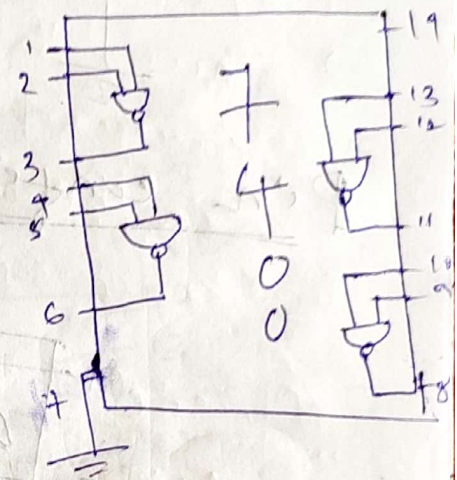 1
2
3
4
5
6
7
7
4
0
0
14
13
12
11
10
9
8